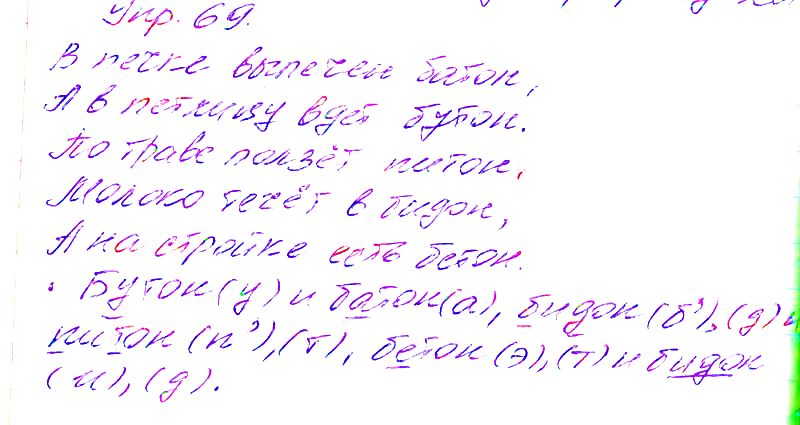 Упр. 69.
В печке выпечен батон,
А в петлицу вдет бутон.
По траве ползёт питон,
Молоко течёт в бидон,
А на стройке есть бетон.
Бутон (у) и батон (а), бидон (б'), (д) и
питон (п'), (т), бетон (э), (т) и бидон
(и), (д).